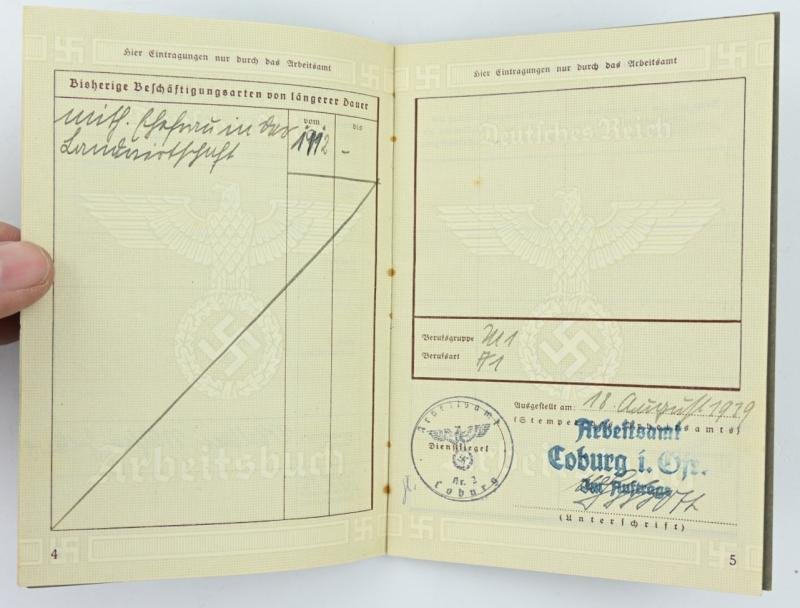 Hier Eintragungen nur durch das Arbeitsamt
Bisherige Beschäftigungsarten von längerer Dauer
vom
bis
mith. Ehefrau in der
Landwirtschaft
1912
-
Arbeitsbuch
4
Hier Eintragungen nur durch das Arbeitsamt
Deutsches Reich
Berufsgruppe
Berufsart
Ausgestellt am: 18. August 1939
(Stempel des Arbeitsamts)
Arbeitsamt
Dienstsiegel
Nr. 2
Coburg
Arbeitsamt
Coburg i. Ofr.
Im Auftrage
(Unterschrift)
5